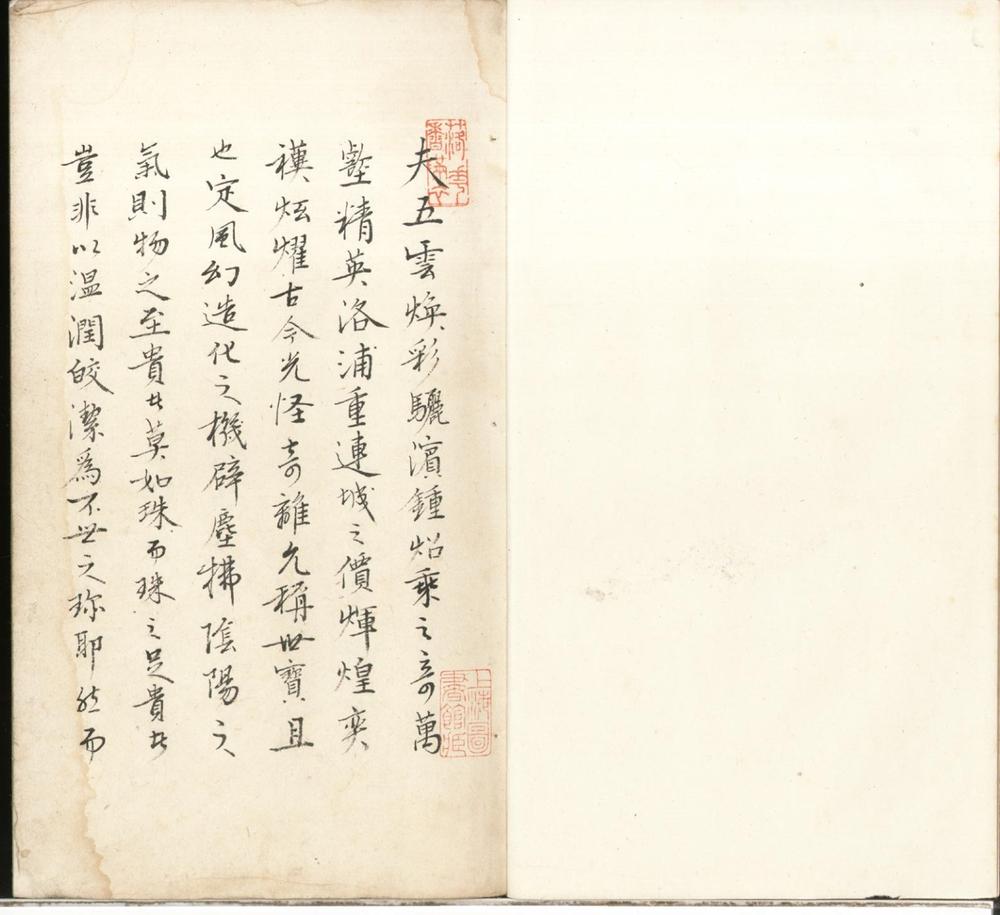 夫五雲煥彩驪濱鍾炤乘之奇萬
壑精英洛浦重連城之價輝煌奕
襈炫耀古今光怪奇離允稱世寶且
也定風幻造化之機辟塵拂陰陽之
氣則物之至貴者莫如珠而珠之足貴者
豈非以温潤皎潔為不世之珎耶然而
上海圖
書館藏